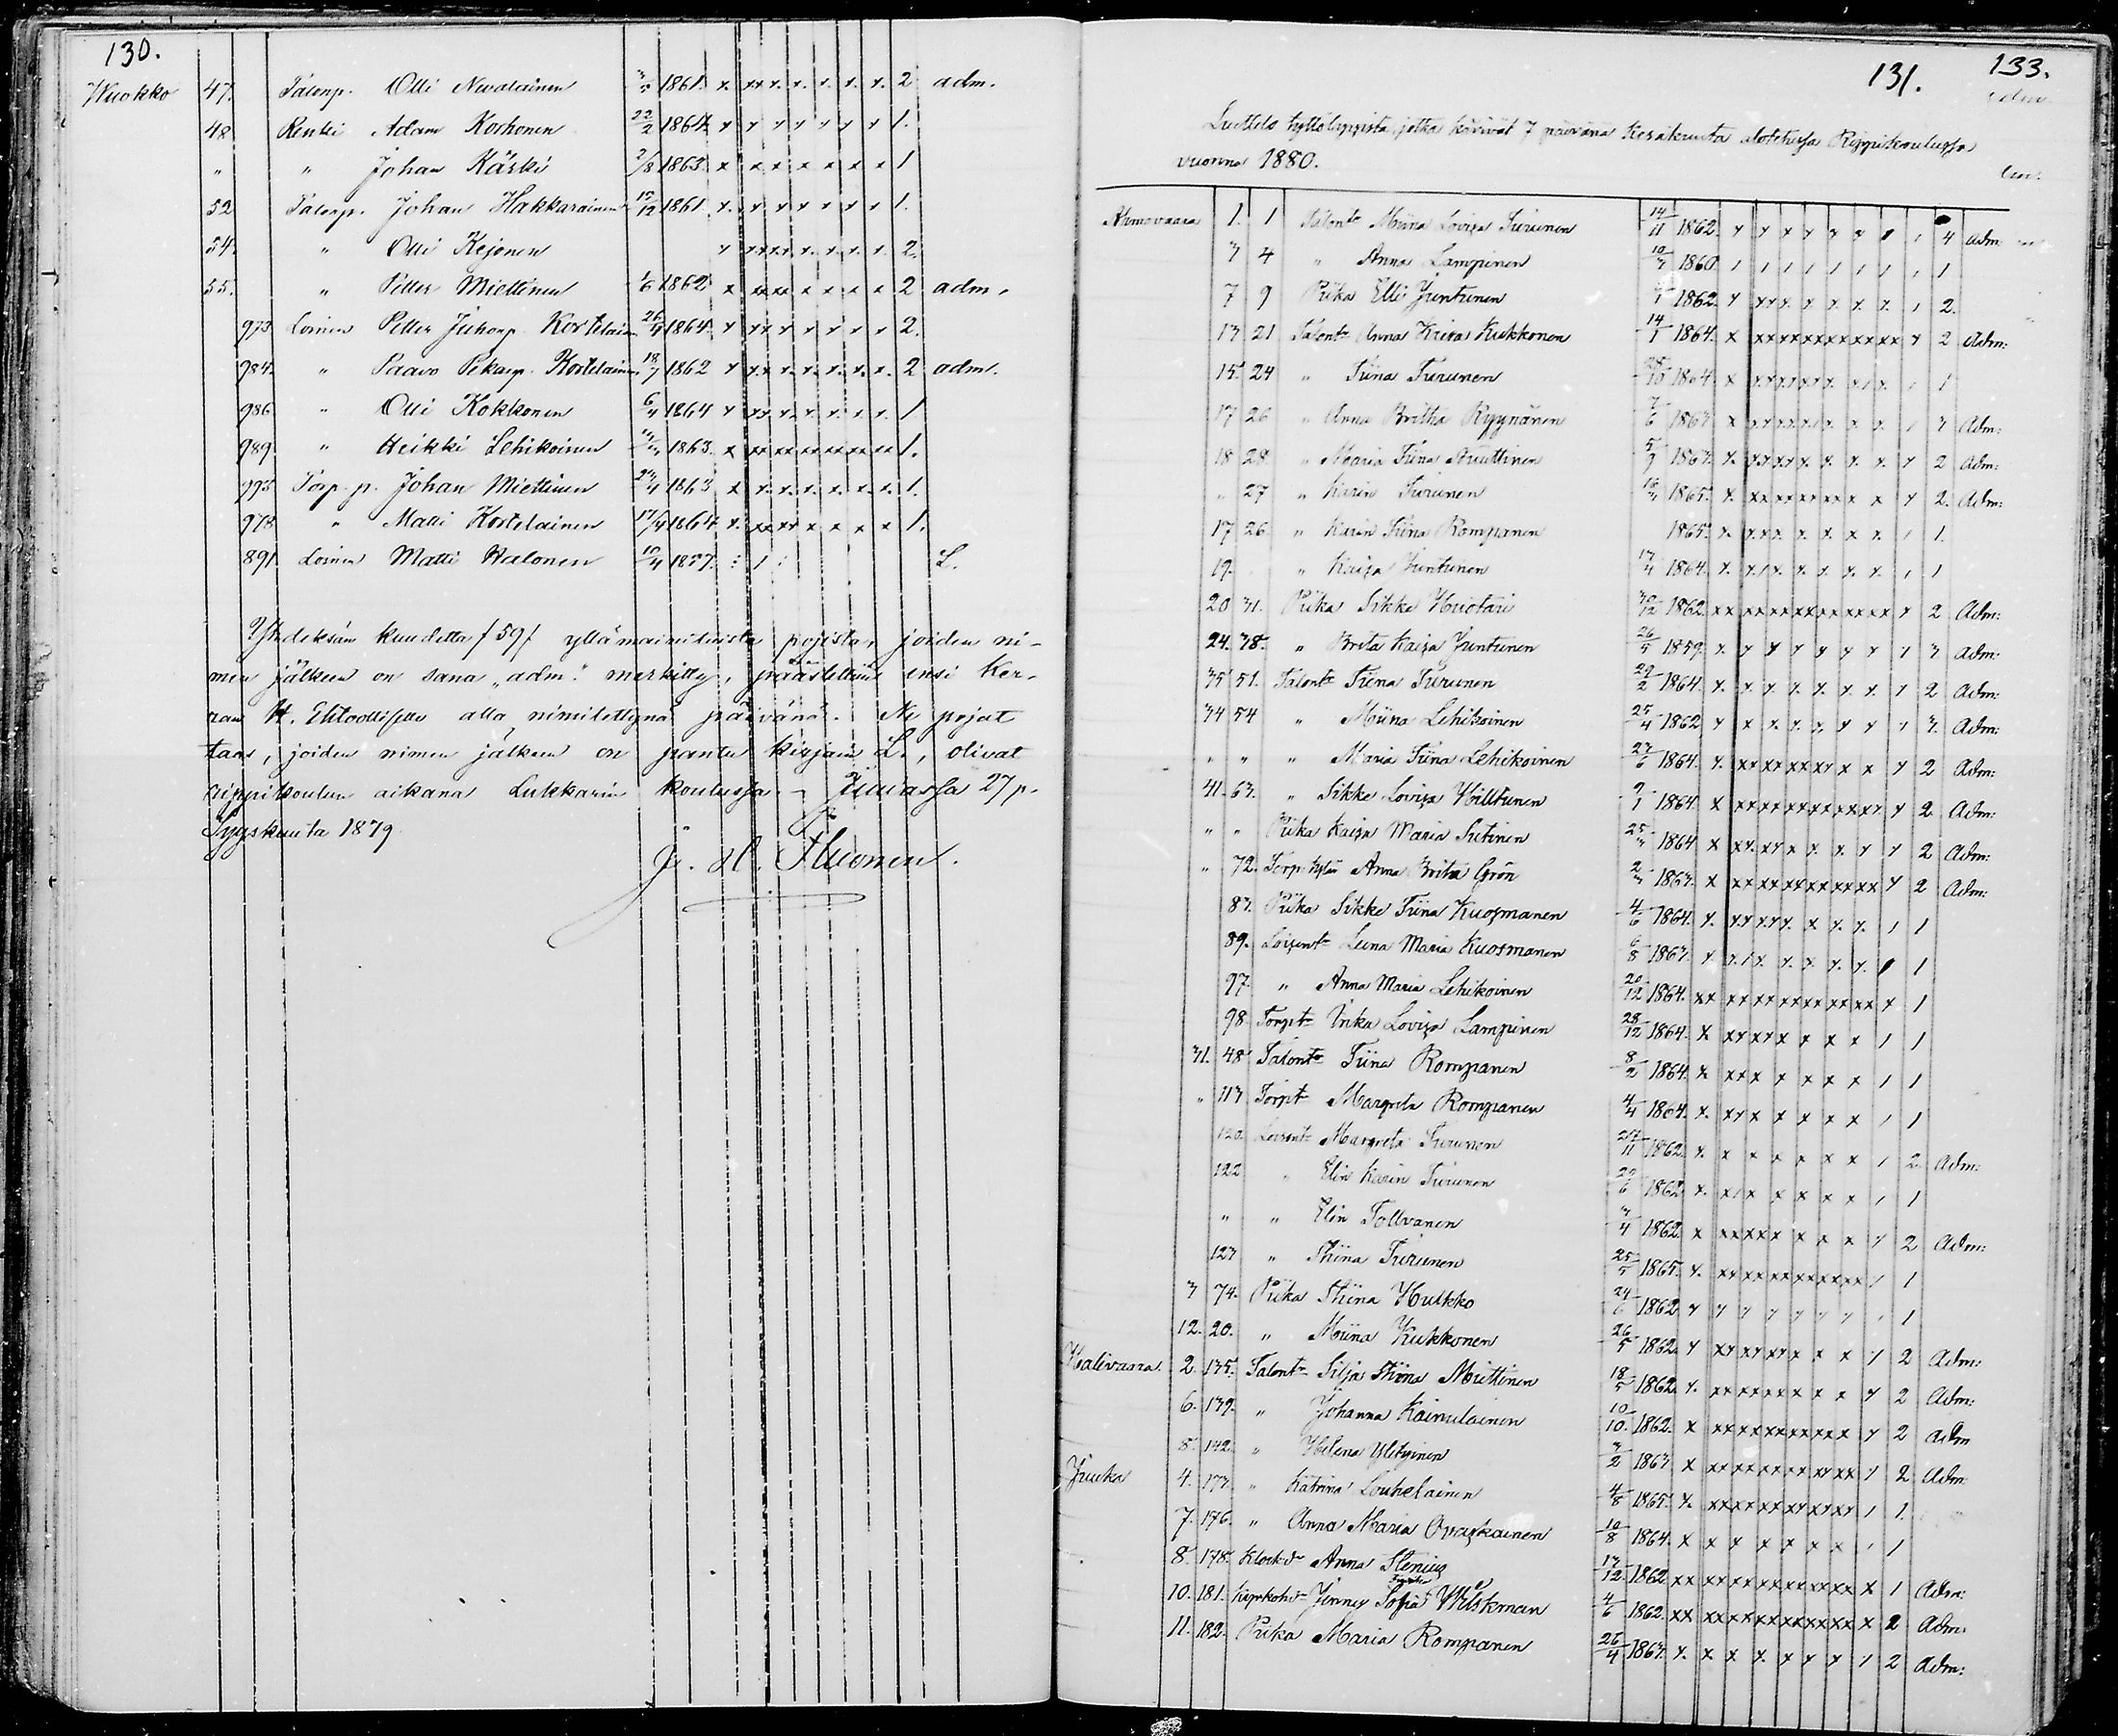 130.
Wuokko 47. Talonp. Olli Nevalainen 3/5 1861. x xx x. x. x. x. x. 2 adm.
48 Renki Adam Korhonen 22/2 1864 x x x x x x x 1.
" " Johan Käski 2/8 1863. x x x x x x x 1
52 Talonp. Johan Hakkarainen 15/12 1861. x. x x x x x x 1.
54. " Olli Kejonen x xxxx x. x. x. x. 2.
55. " Petter Miettinen 1/6 1862 x xxx x x x x 2 adm.
973 Loinen Petter Juhonp. Kortelain 26/4 1864. x xx x x x x x 2.
984. " Paavo Pekanp. Kortelainen 18/7 1862 x xx x. x. x. x. x. 2 adm.
986 " Olli Kokkonen 6/4 1864 x xx x. x. x. x. x. 1
989 " Heikki Lehikoinen 1863. x xxxxxxxxxx 1.
995 Torp. p. Johan Miettinen 1863 x x. x. x. x. x. x. 1.
973 " Matti Kortelainen 17/4 1864 x. xxxx x x x x 1.
891 Loinen Matti Halonen 10/4 1857. : 1 : L.
Yhdeksän kuudetta /59/ yllämainituista pojista, joiden ni-
men jälkeen on sana „adm." merkitty, päästettiin ensi Ker-
ran H. Ehtoolliselle alla nimitettynä päivänä. Ne pojat
taas, joiden nimen jälkeen on pantu kirjain L., olivat
rippikoulun aikana Lukkarin koulussa. – Juuassa 27 p.
Syyskuuta 1879.
131. 133.
Luettelo tyttölapsista, jotka kävivät 7 päivänä Kesäkuuta alotetussa Rippikoulussa
vuonna 1880.
Ahmovaara 1. 1 Talont. Miina Lovisa Turunen 14/11 1862. x x x x x x 1 1 4 Adm
3 4 " Anna Lampinen 10/3 1860 1 1 1 1 1 1 1 1 1
7 9 Piika Elli Juntunen 1862. x xxx. x. x. x. x. 1 2.
13 21 Talont. Anna Kaisa Kukkonen 14/1 1864. x xxxxxxxxxxxx x 2 Adm:
15. 24 " Tiina Turunen 28/10 1864. x xxxxxx. x1x. 1 1
17 26 " Anna Britha Ryynänen 7/6 1863 x xxxxxx. x x. 1 3 Adm:
18 28 " Maria Tiina 5/9 1863. x. xxxxx. x. x. x. x 2 Adm:
" 27 " Karin Turunen 1865. x. xxxxxxxx x x 2. Adm:
17 26 " Karin Tiina Rompanen 1865. x. xxxx. x. x. x x. 1 1.
19. " Kaisa Juntunen 1864. x. x1x. x. x. x. x. 1 1
20 31. Piika Sikke Huotari 30/12 1862. xx xxxxxxxxxxxx x 2 Adm:
24. 38. " Brita Kaisa Juntunen 26/5 1859. x. x x x x x x 1 3 Adm:
35 51. Talont. Tiina Turunen 29/2 1864. x. x. x. x. x. x. x. x 2 Adm:
34 54 " Miina Lehikoinen 25/4 1862 x x x. x. x. x x 1 3. Adm:
" " " Maria Tiina Lehikoinen 27/6 1864. x. xxxxxxxx x x x 2 Adm:
41. 63. " Sikke Lovisa Hilttunen 9/1 1864. x xxxxxxxxxxxx. x 2 Adm:
" " Piika Kaisa Maria Sutinen 25/3 1864 x xx. xx x x. x. x x 2 Adm:
" 72. Torp. tytär Anna Brita Grön 2/3 1863. x xxxxxxxxxxxx x 2 Adm:
83. Piika Sikke Tiina Kuosmanen 4/6 1864. x. xxxxx. x x. x. 1 1
89. Loisent. Leena Maria Kuosmanen 6/8 1863. x x.1x. x. x. x. x. 1 1
97. " Anna Maria Lehikoinen 20/12 1864. xx xxxxxxxxxxxx x 1
98 Torpt. Inka Lovisa Lampinen 28/12 1864. x xxxxx x x x 1 1
31. 48 Talont. Tiina Rompanen 8/2 1864. x xxx x x x x 1 1
" 113 Torpt. Margreta Rompanen 4/4 1864. x. xxx x x x x 1 1
120 Loisent. Margreta Turunen 27/11 1862. x. x x x x x x 1 2. Adm:
122 " Elin Karin Turunen 29/6 1862 x. x1x x x x x 1 1
" " Elin Tolvanen 3/4 1862. x xxxxx x x x x 2 Adm:
123 " Stiina Turunen 25/5 1865. x. xxxxxxxxxxxx 1 1
3 74. Piika Stiina Hukko 24/6 1862 x x x x x x x 1 1
12. 20. " Miina Kukkonen 26/5 1862. x xxxxxxx x x 1 2 Adm:
Halivaara. 2. 135. Talont. Silja Stiina Miettinen 18/5 1862. x. xxxxxxxx x x 2 Adm:
6. 139. " Johanna Kainulainen 10/10. 1862. x xxxxxxxxxxx x 2 Adm
8. 142. " Helena Ylitzinen 3/2 1863 x xxxxxxxxxxxx 1 2 Adm
Juuka 4. 173. " Katrina Louhelainen 4/8 1865. x. xxxxxxxxxxxx 1 1.
7. 176. " Anna Maria Ovaskainen 10/8 1864. x x x x x x x 1 1
8. 178. Klock. d. Anna Stenius 13/12 1862 xx xxxxxxxxxxxxx x 1 Adm:
10. 181. Jenny Sofia 4/6 1862. xx xxxxxxxxxxxxx x 2 Adm:
11. 182. Piika Maria Rompanen 26/4 1863. x. x x x. x x x 1 2 Adm: